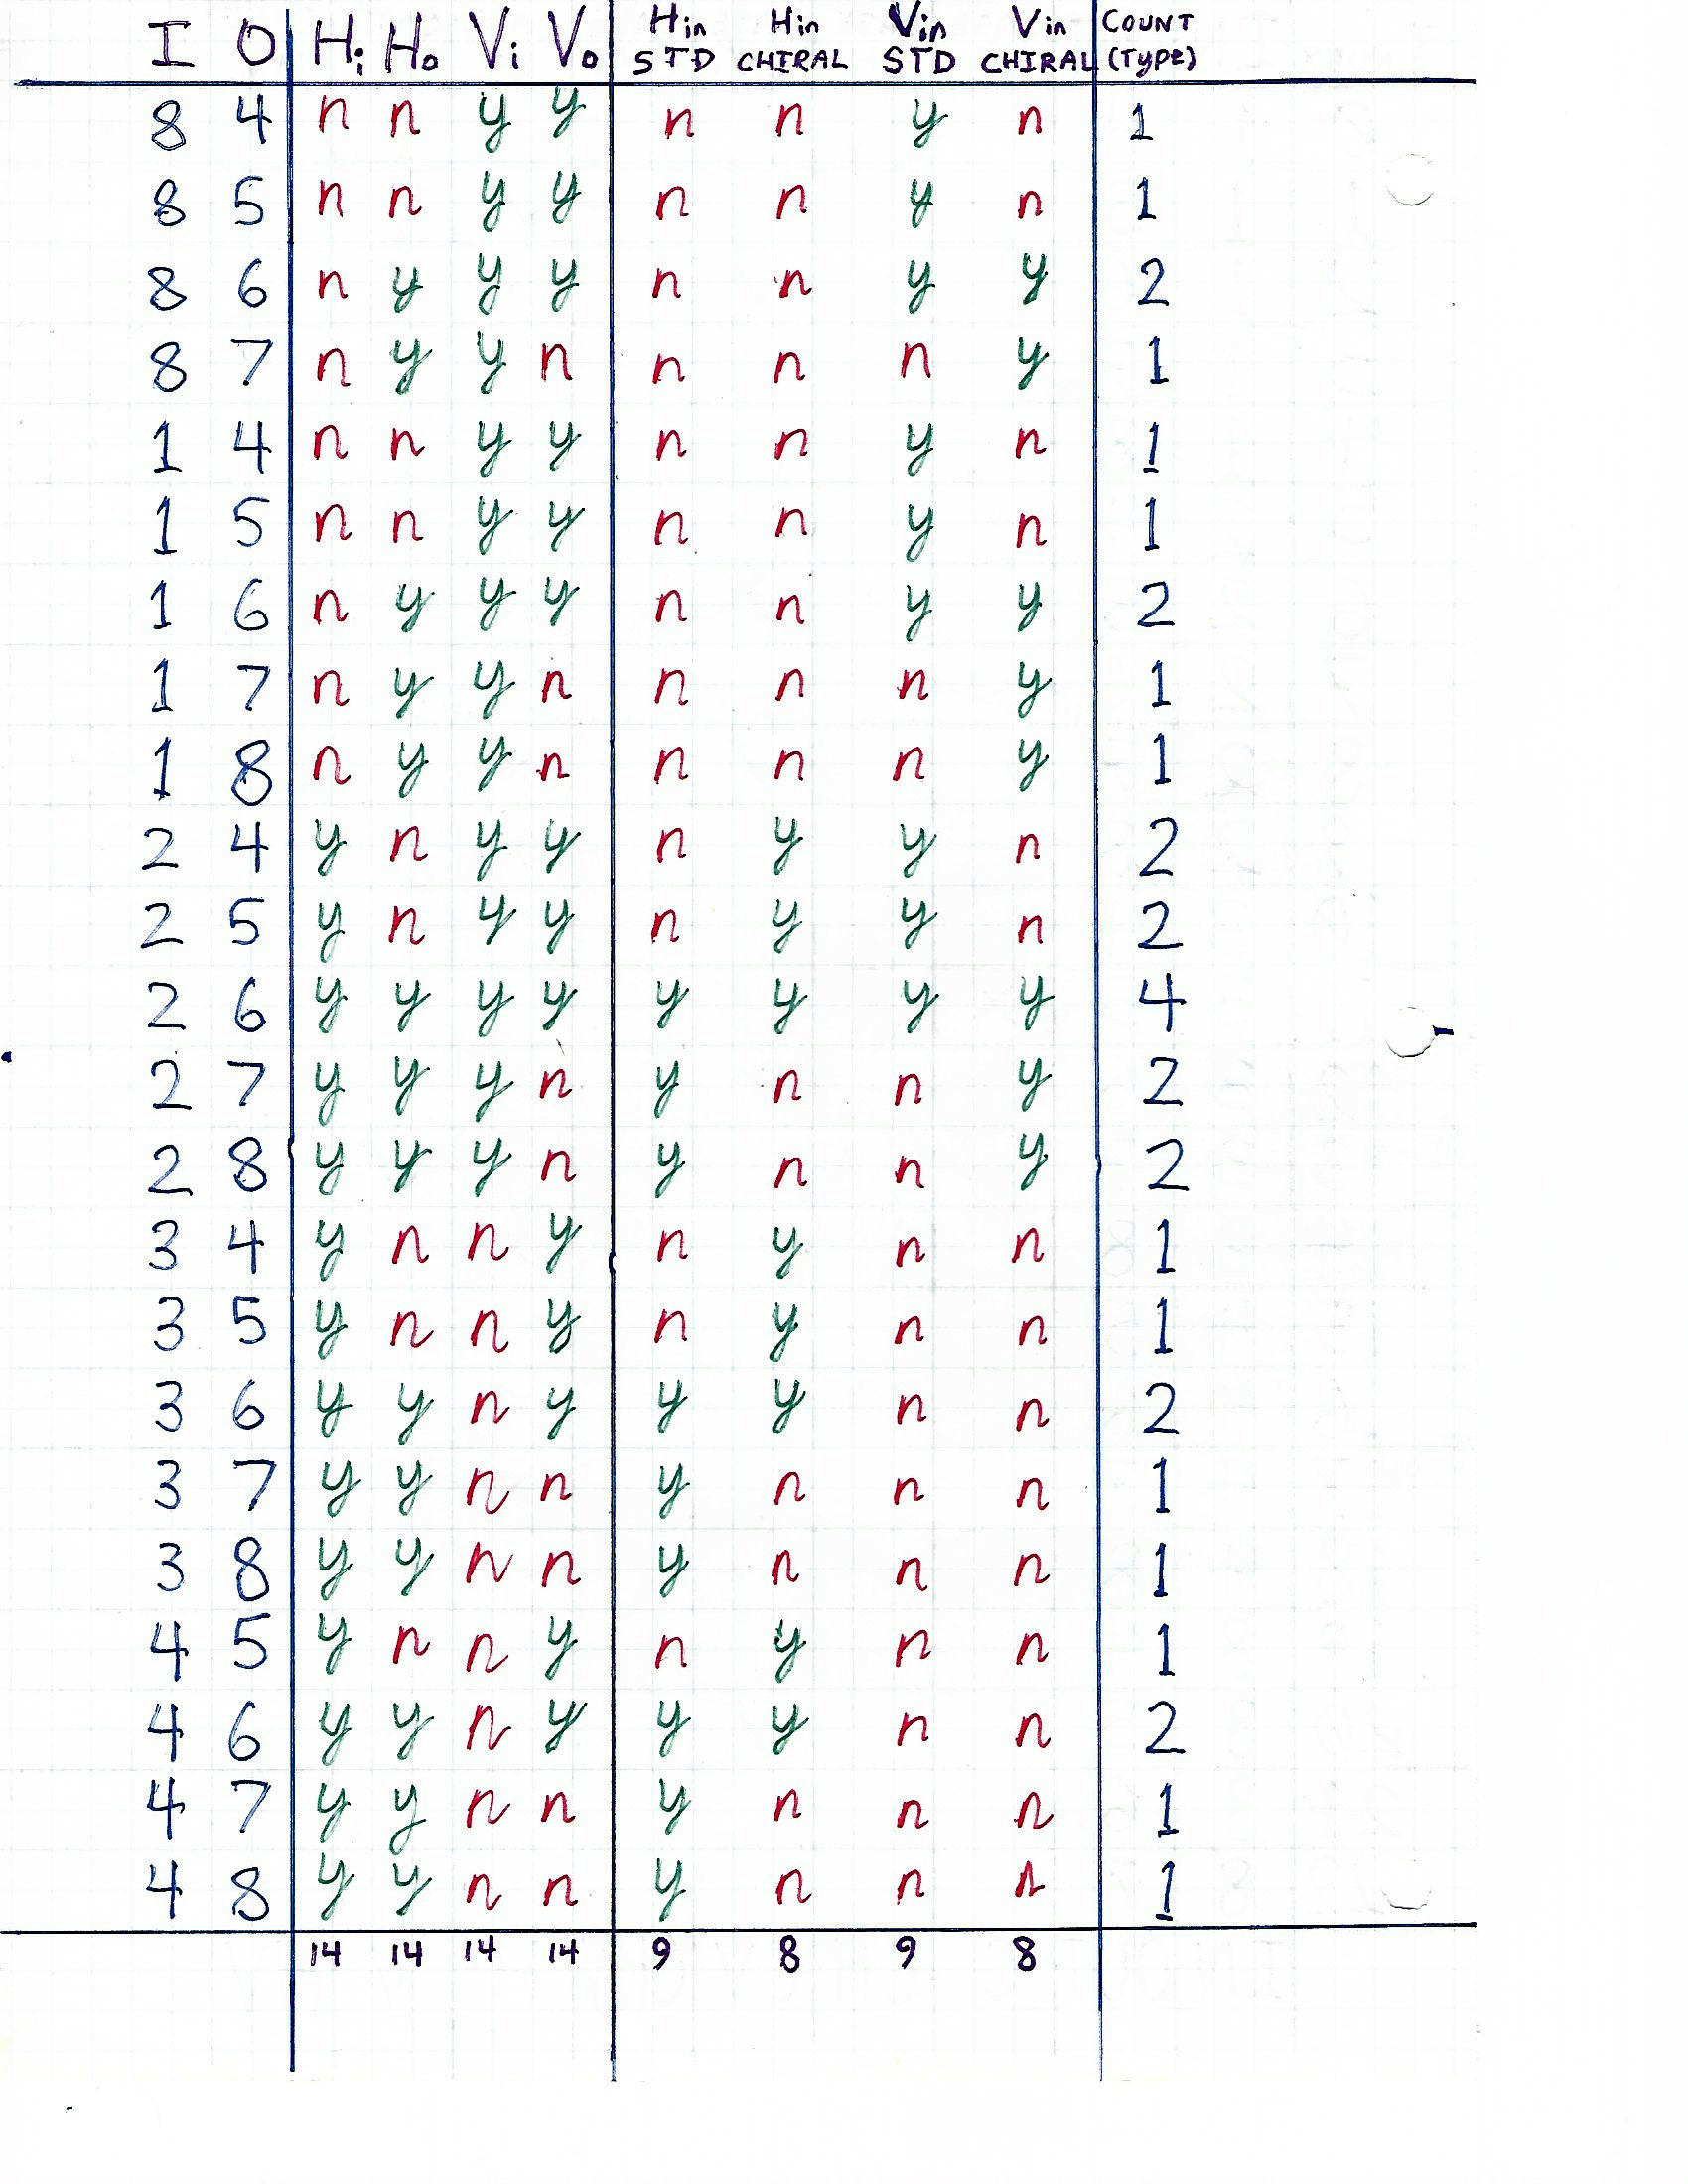 I O Hi Ho Vi Vo Hin STD Hin CHIRAL Vin STD Vin CHIRAL COUNT (TYPE)
8 4 n n y y n n y n 1
8 5 n n y y n n y n 1
8 6 n y y y n n y y 2
8 7 n y y n n n n y 1
1 4 n n y y n n y n 1
1 5 n n y y n n y n 1
1 6 n y y y n n y y 2
1 7 n y y n n n n y 1
1 8 n y y n n n n y 1
2 4 y n y y n y y n 2
2 5 y n y y n y y n 2
2 6 y y y y y y y y 4
2 7 y y y n y n n y 2
2 8 y y y n y n n y 2
3 4 y n n y n y n n 1
3 5 y n n y n y n n 1
3 6 y y n y y y n n 2
3 7 y y n n y n n n 1
3 8 y y n n y n n n 1
4 5 y n n y n y n n 1
4 6 y y n y y y n n 2
4 7 y y n n y n n n 1
4 8 y y n n y n n n 1
14 14 14 14 9 8 9 8